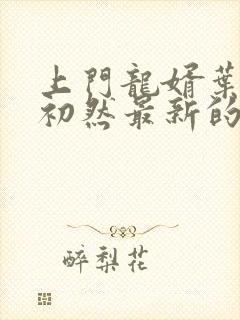 上門龍婿葉
初然最新的
醉梨花